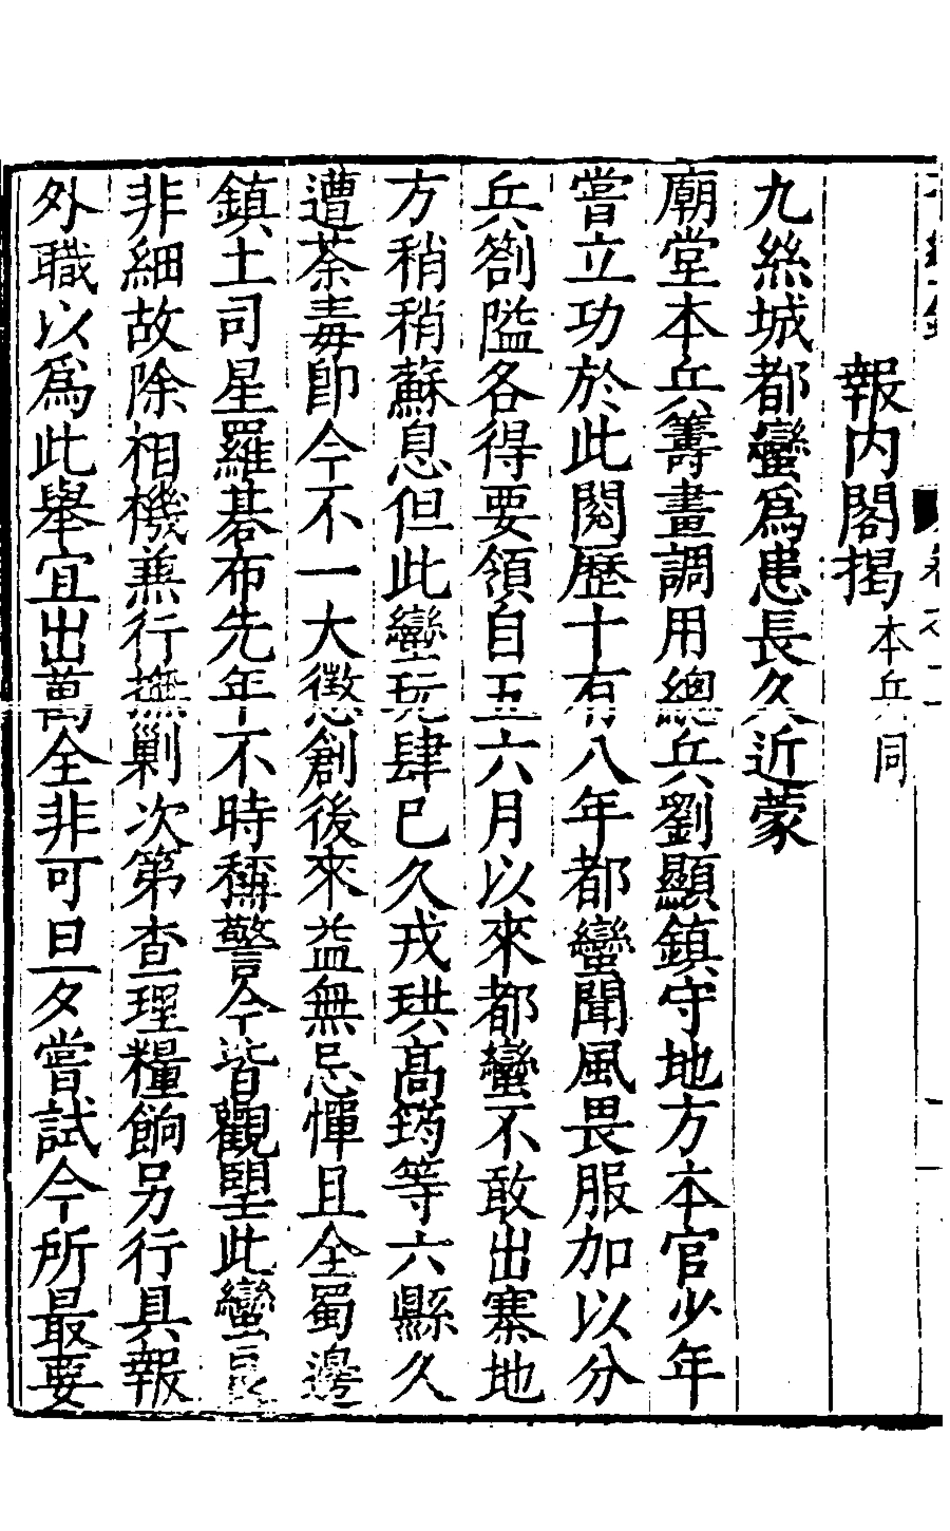 報內閣揭本兵同
九絲城都蠻爲患長久近蒙
廟堂本兵籌畫調用總兵劉顯鎮守地方本官少年
嘗立功於此閱歷十有八年都蠻聞風畏服加以分
兵劄隘各得要領自五六月以來都蠻不敢出寨地
方稍稍蘇息但此蠻玩肆已久戎珙高筠等六縣久
遭荼毒卽今不一大懲創後來益無忌憚且全蜀邊
鎮土司星羅碁布先年不時稱警今皆觀望此蠻
非細故除相機兼行撫剿次第查理糧餉另行具報
外職以爲此舉宜出萬全非可旦夕嘗試今所最要